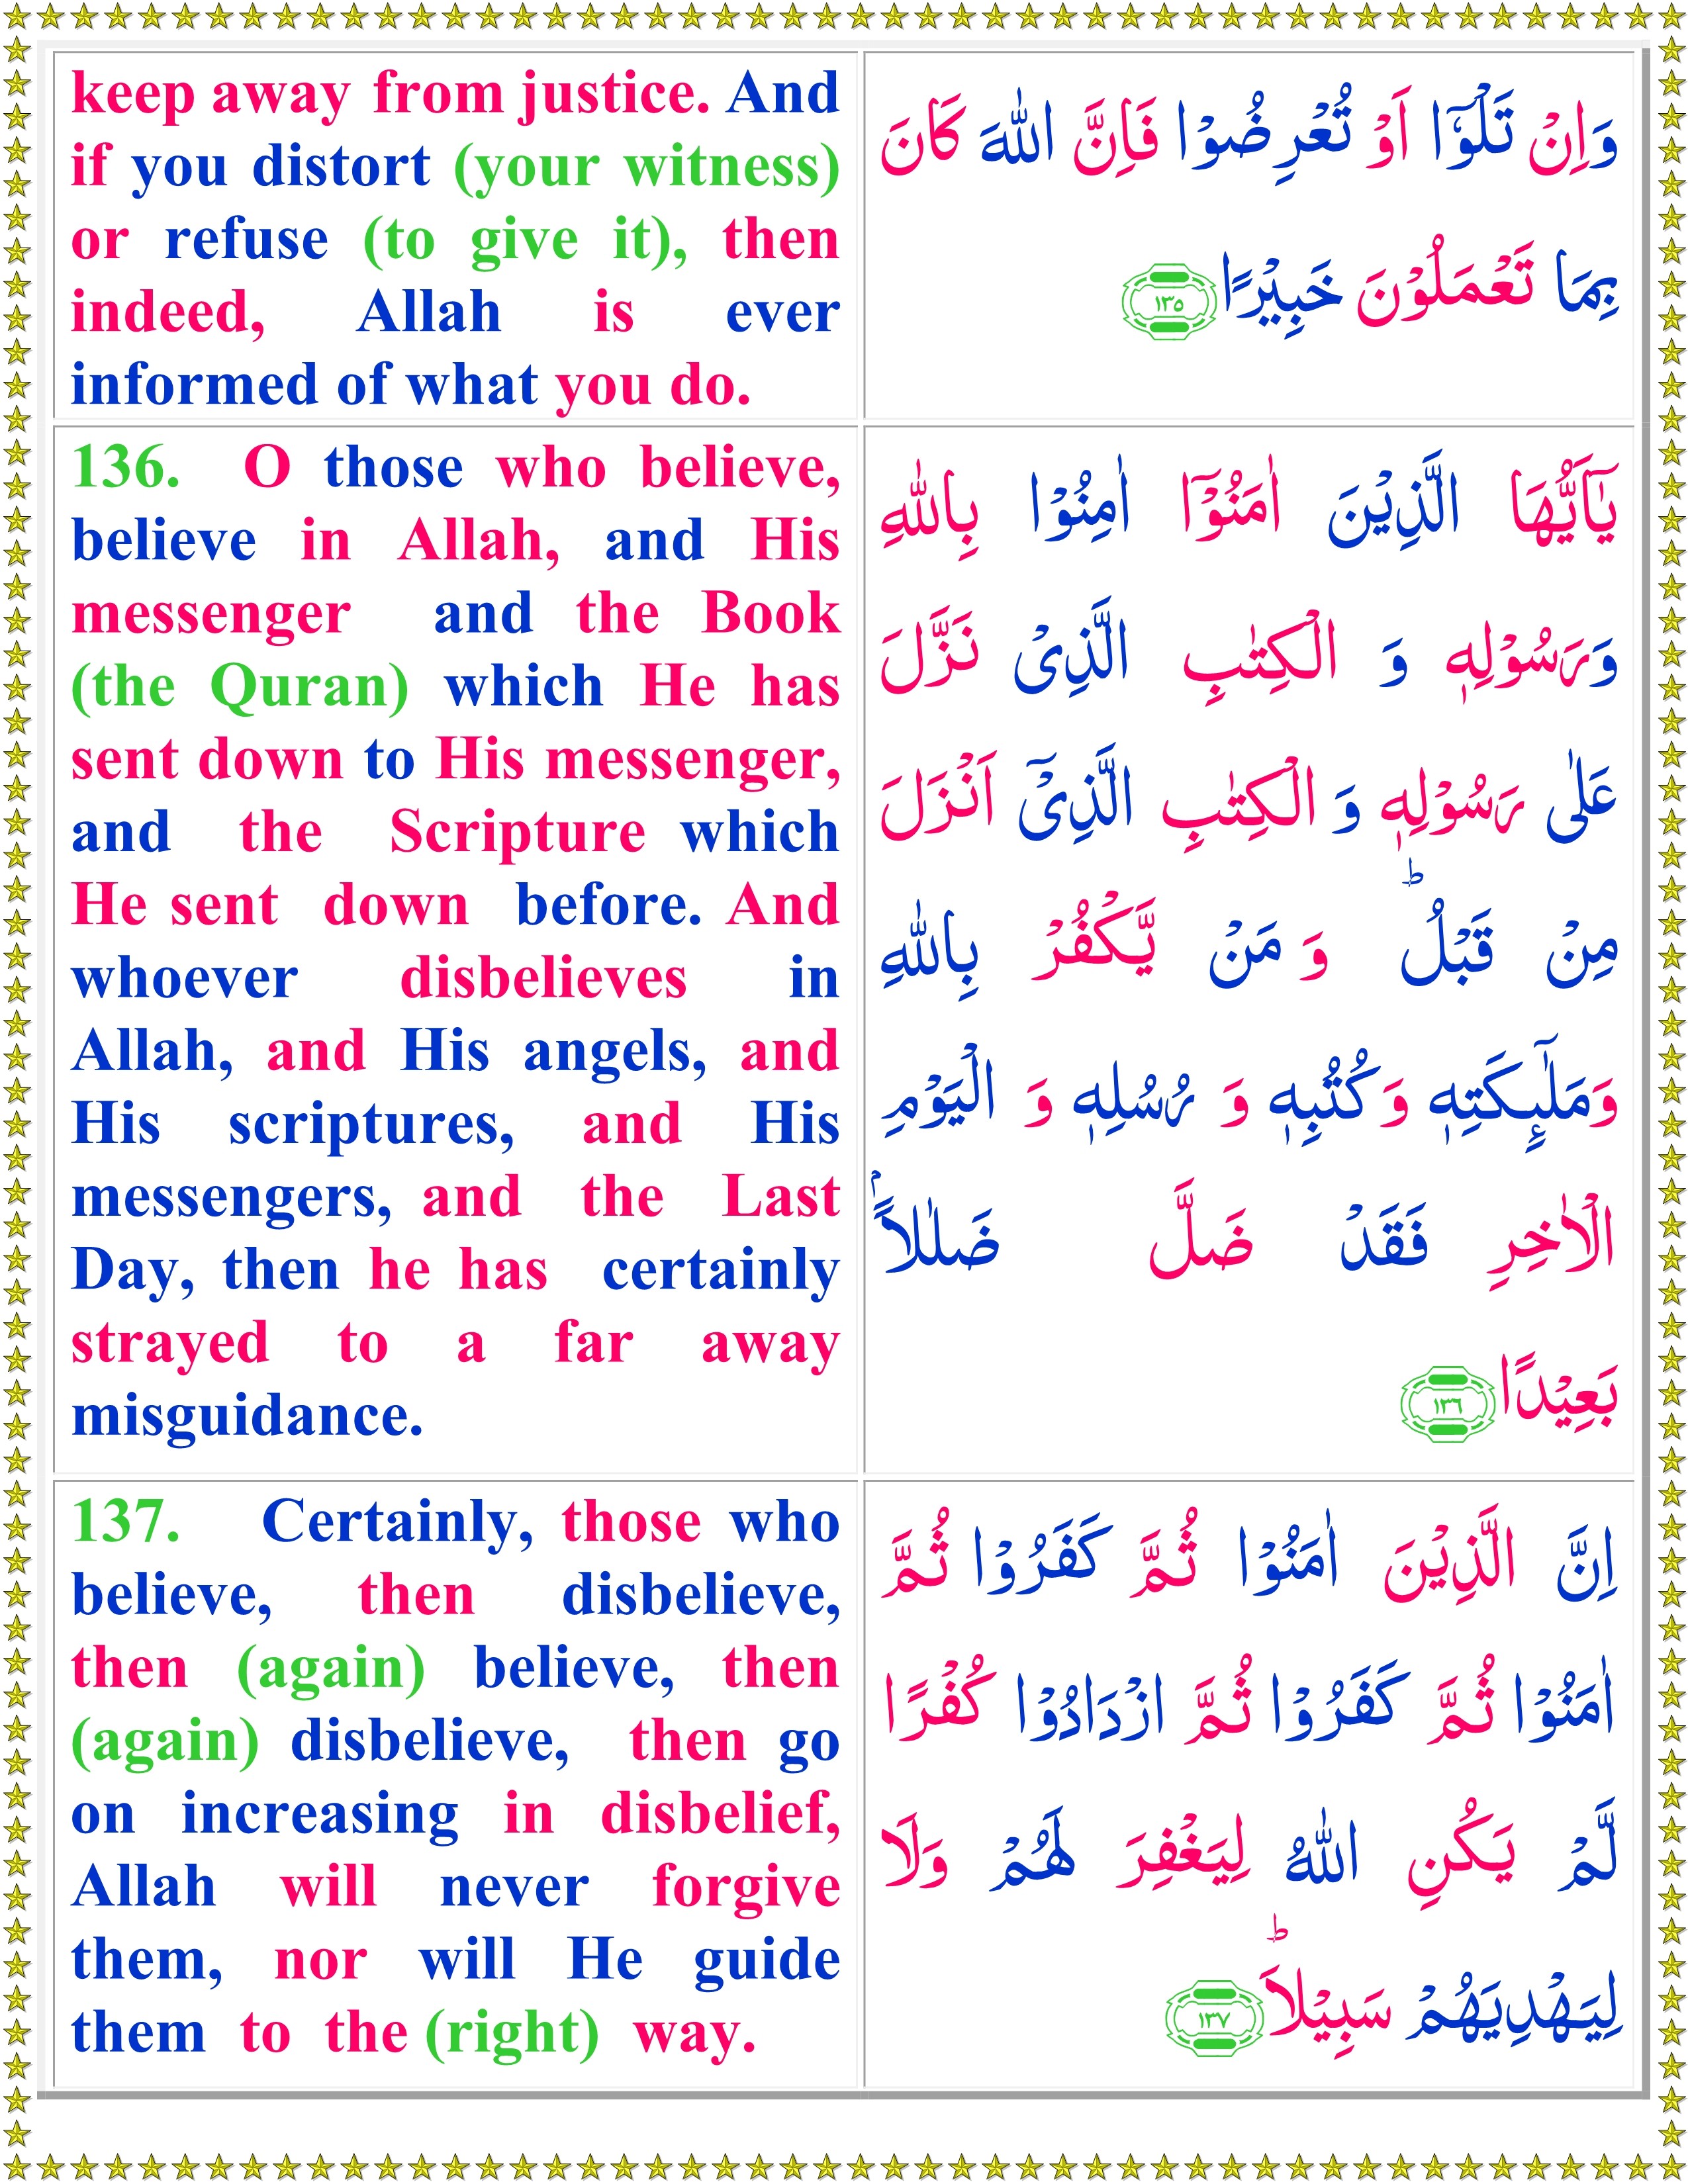 keep away from justice. And
if you distort (your witness)
or refuse (to give it), then
indeed, Allah is ever
informed of what you do.
وَاِنْ تَلْوٗۤا اَوْ تُعْرِضُوْا فَاِنَّ اللّٰهَ كَانَ
بِمَا تَعْمَلُوْنَ خَبِيْرًا ١٣٥
136. O those who believe,
believe in Allah, and His
messenger and the Book
(the Quran) which He has
sent down to His messenger,
and the Scripture which
He sent down before. And
whoever disbelieves in
Allah, and His angels, and
His scriptures, and His
messengers, and the Last
Day, then he has certainly
strayed to a far away
misguidance.
يٰۤاَيُّهَا الَّذِيْنَ اٰمَنُوْۤا اٰمِنُوْا بِاللّٰهِ
وَرَسُوْلِهٖ وَ الْكِتٰبِ الَّذِىْ نَزَّلَ
عَلٰى رَسُوْلِهٖ وَ الْكِتٰبِ الَّذِىْۤ اَنْزَلَ
مِنْ قَبْلُ ؕ وَ مَنْ يَّكْفُرْ بِاللّٰهِ
وَمَلٰٓٮِٕكَتِهٖ وَكُتُبِهٖ وَ رُسُلِهٖ وَ الْيَوْمِ
الْاٰخِرِ فَقَدْ ضَلَّ ضَلٰلاًۢ
بَعِيْدًا ١٣٦
137. Certainly, those who
believe, then disbelieve,
then (again) believe, then
(again) disbelieve, then go
on increasing in disbelief,
Allah will never forgive
them, nor will He guide
them to the (right) way.
اِنَّ الَّذِيْنَ اٰمَنُوْا ثُمَّ كَفَرُوْا ثُمَّ
اٰمَنُوْا ثُمَّ كَفَرُوْا ثُمَّ ازْدَادُوْا كُفْرًا
لَّمْ يَكُنِ اللّٰهُ لِيَغْفِرَ لَهُمْ وَلَا
لِيَهْدِيَهُمْ سَبِيْلاً ؕ ١٣٧